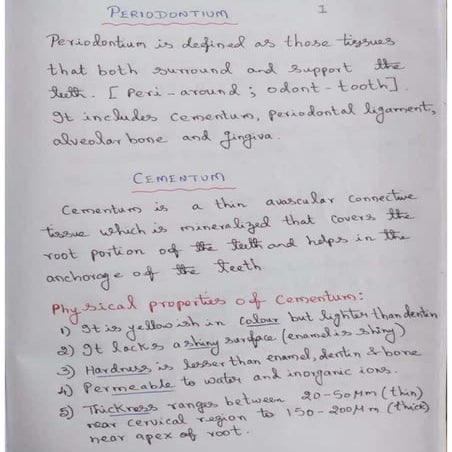 PERIODONTIUM 1
Periodontium is defined as those tissues
that both surround and support the
teeth. [Peri-around ; odont-tooth].
It includes cementum, periodontal ligament,
alveolar bone and gingiva.
CEMENTUM
Cementum is a thin avascular connective
tissue which is mineralized that covers the
root portion of the teeth and helps in the
anchorage of the teeth
Physical properties of Cementum:
1) It is yellowish in colour but lighter than dentin
2) It lacks a shiny surface (enamel is shiny)
3) Hardness is lesser than enamel, dentin & bone
4) Permeable to water and inorganic ions.
5) Thickness ranges between 20-50μm (thin)
near cervical region to 150-200μm (thick)
near apex of root.